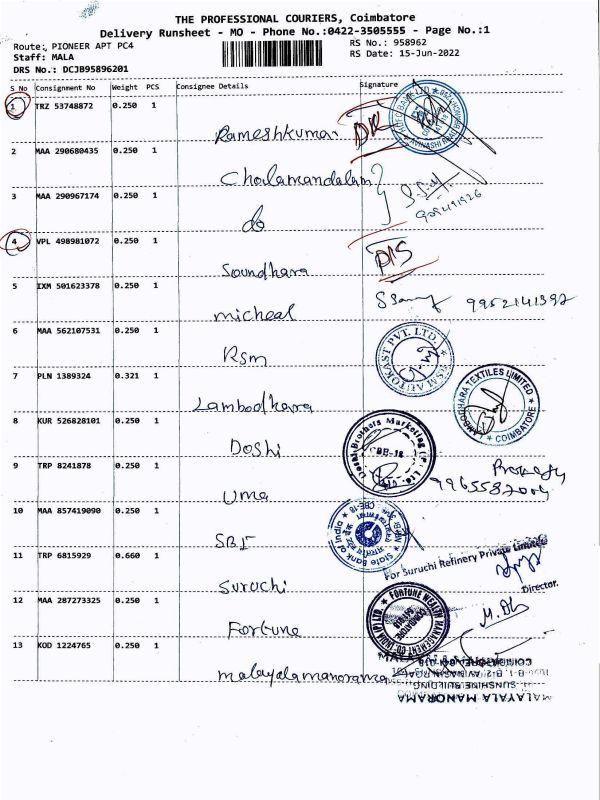 THE PROFESSIONAL COURIERS, Coimbatore
Delivery Runsheet - MO - Phone No.:0422-3505555 - Page No.:1
Route: PIONEER APT PC4
RS No.: 958962
Staff: MALA
RS Date: 15-Jun-2022
DRS No.: DCJB95896201
S No Consignment No Weight PCS Consignee Details Signature
1 TRZ 53748872 0.250 1 Rameshkumar
2 MAA 290680435 0.250 1 Cholamandalam
3 MAA 290967174 0.250 1 do
4 VPL 498981072 0.250 1 Soundhara DIS
5 IXM 501623378 0.250 1 micheal 9952141392
6 MAA 562107531 0.250 1 Rsm
AUTOKAST PVT. LTD.
7 PLN 1389324 0.321 1 Lambodhara
LAMBODHARA TEXTILES LIMITED
COIMBATORE
8 KUR 526828101 0.250 1 Doshi
Doshi Brothers Marketing (P) Ltd.
CBE-18
9 TRP 8241878 0.250 1 Uma
10 MAA 857419090 0.250 1 SBI
State Bank of India
11 TRP 6815929 0.660 1 Suruchi
For Suruchi Refinery Private Limited
Director.
12 MAA 287273325 0.250 1 Fortune
FORTUNE WEALTH MANAGEMENT CO. INDIA (P) LTD.
13 KOD 1224765 0.250 1 malayalamanorama
MALAYALA MANORAMA
SUNSHINE BUILDING